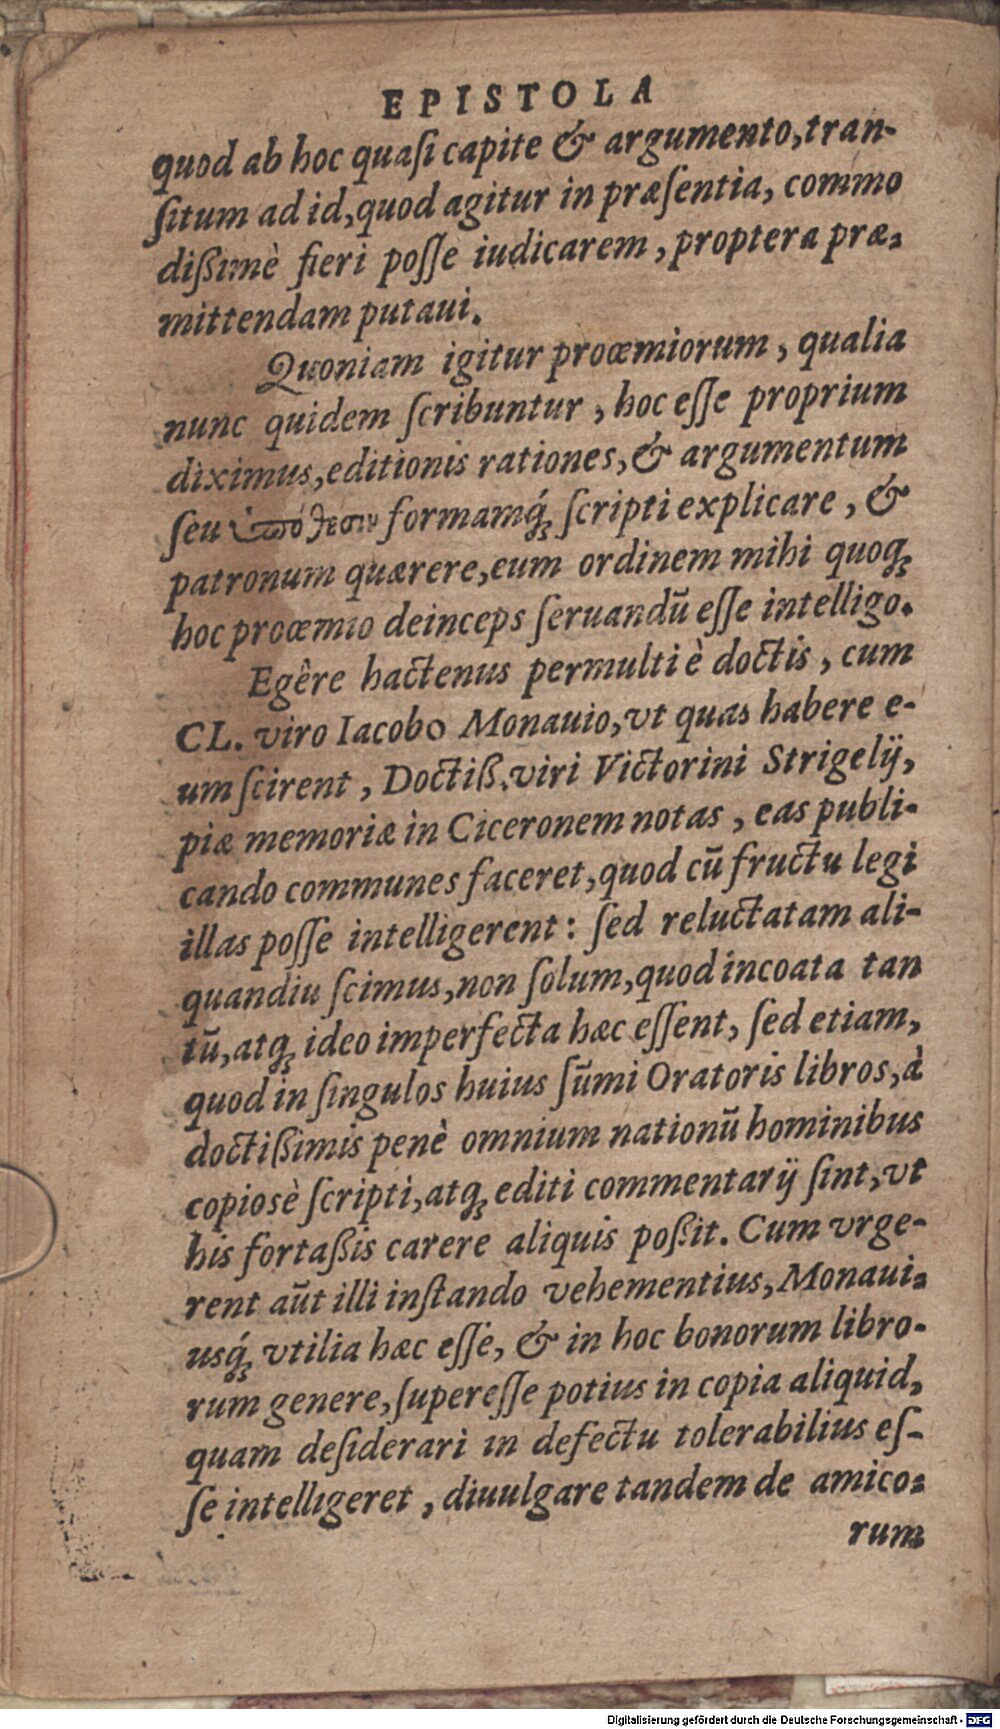 EPISTOLA
quod ab hoc quaſi capite & argumento, tran-
ſitum ad id, quod agitur in præſentia, commo
dißimè fieri poſſe iudicarem, propterea præ-
mittendam putaui.
Quoniam igitur proœmiorum, qualia
nunc quidem ſcribuntur, hoc eſſe proprium
diximus, editionis rationes, & argumentum
ſeu ὑπόθεσιν formamq́; ſcripti explicare, &
patronum quærere, eum ordinem mihi quoq;
hoc proœmio deinceps ſeruandũ eſſe intelligo.
Egêre hactenus permulti è doctis, cum
CL. viro Iacobo Monauio, vt quas habere e-
um ſcirent, Doctiß. viri Victorini Strigelij,
piæ memoriæ in Ciceronem notas, eas publi-
cando communes faceret, quod cũ fructu legi
illas poſſe intelligerent: ſed reluctatam ali-
quandiu ſcimus, non ſolum, quod incoata tan
tũ, atq; ideo imperfecta hæc eſſent, ſed etiam,
quod in ſingulos huius ſũmi Oratoris libros, à
doctißimis penè omnium nationũ hominibus
copiosè ſcripti, atq; editi commentarij ſint, vt
his fortaßis carere aliquis poßit. Cum vrge-
rent aũt illi inſtando vehementius, Monaui-
usq́; vtilia hæc eſſe, & in hoc bonorum libro-
rum genere, ſupereſſe potius in copia aliquid,
quam deſiderari in defectu tolerabilius eſ-
ſe intelligeret, diuulgare tandem de amico-
rum
Digitalisierung gefördert durch die Deutsche Forschungsgemeinschaft - DFG